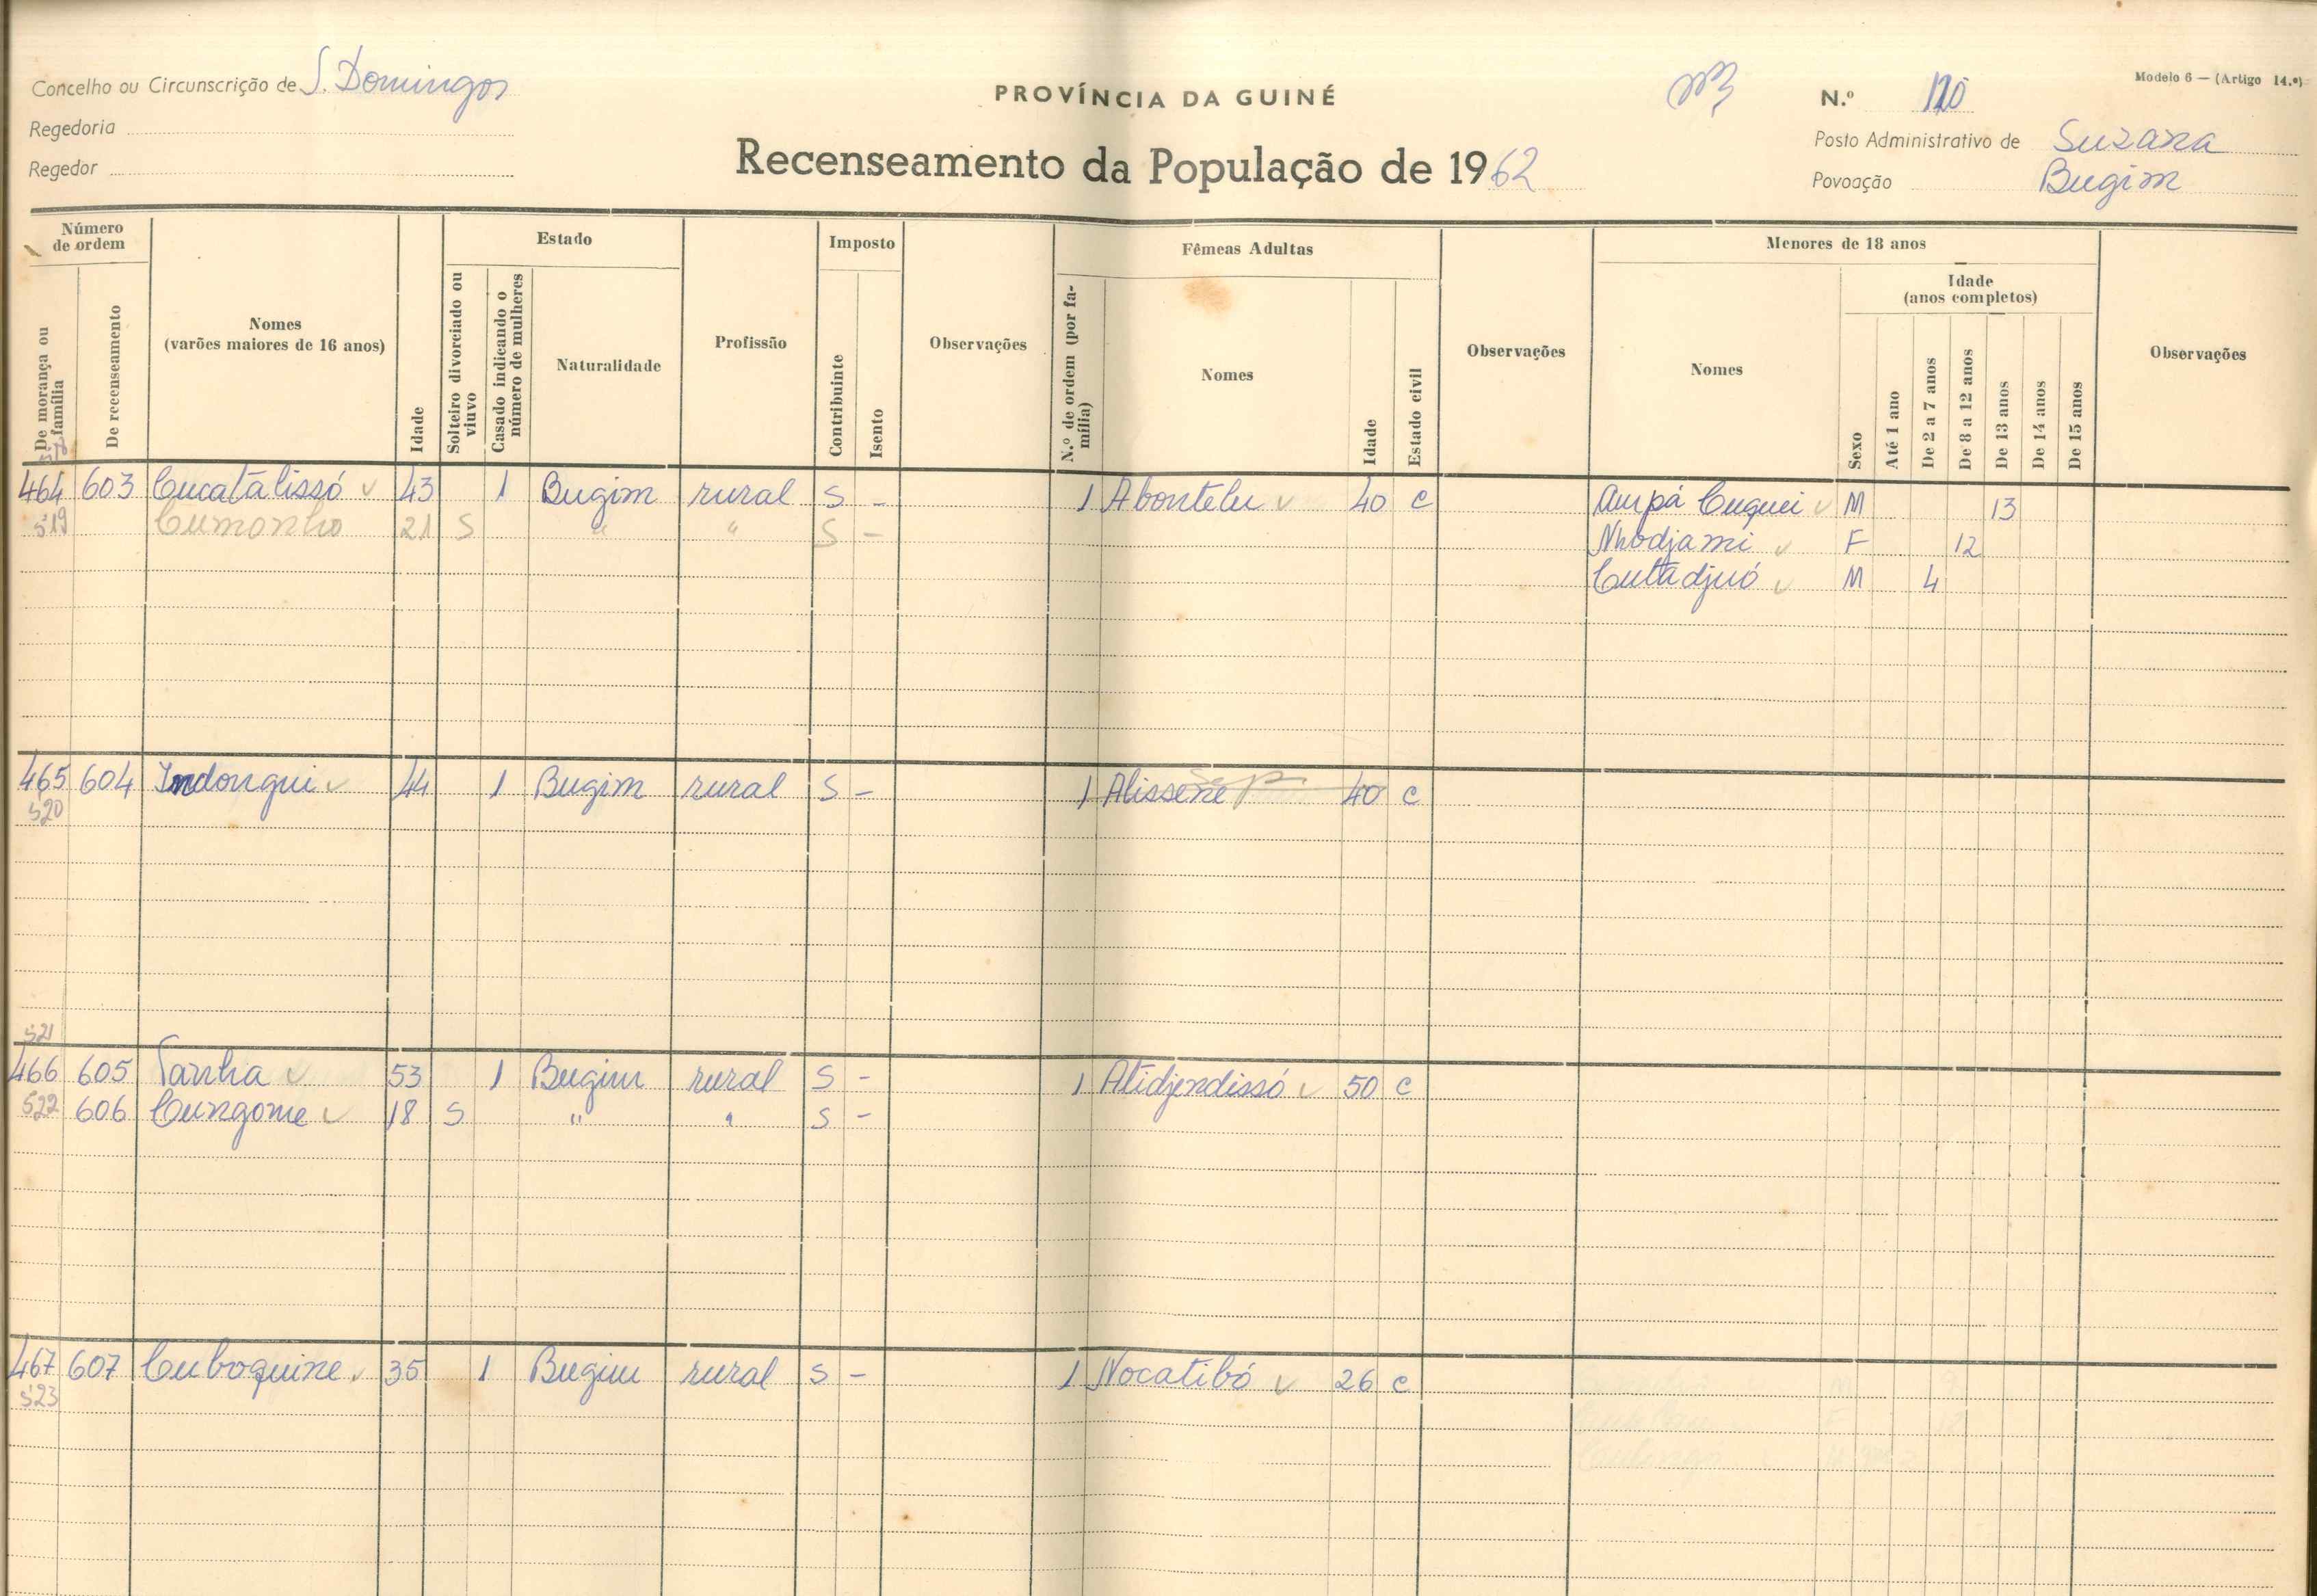 Concelho ou Circunscrição de S. Domingos
Regedoria
Regedor
PROVÍNCIA DA GUINÉ
Recenseamento da População de 1962
Modelo 6 — (Artigo 14.º)
N.º 120
Posto Administrativo de Suzana
Povoação Bugim
Número de ordem
De morança ou família
De recenseamento
Nomes (varões maiores de 16 anos)
Idade
Estado
Solteiro divorciado ou viuvo
Casado indicando o número de mulheres
Naturalidade
Profissão
Imposto
Contribuinte
Isento
Observações
Fêmeas Adultas
N.º de ordem (por família)
Nomes
Idade
Estado civil
Observações
Menores de 18 anos
Nomes
Sexo
Idade (anos completos)
Até 1 ano
De 2 a 7 anos
De 8 a 12 anos
De 13 anos
De 14 anos
De 15 anos
Observações
518
464 603 Cucatalissó 43 1 Bugim rural S - 1 Abontelu 40 c Ampá Cuquei M 13
519 Cumonho 21 S " " S - Nhodjami F 12
Cutadjuó M 4
465 604 Indongui 44 1 Bugim rural S - 1 Alissene 40 c
520
521
466 605 Tanha 53 1 Bugim rural S - 1 Atidjendissó 50 c
522 606 Cungome 18 S " " S -
467 607 Cuboquine 35 1 Bugim rural S - 1 Nocatibó 26 c
523